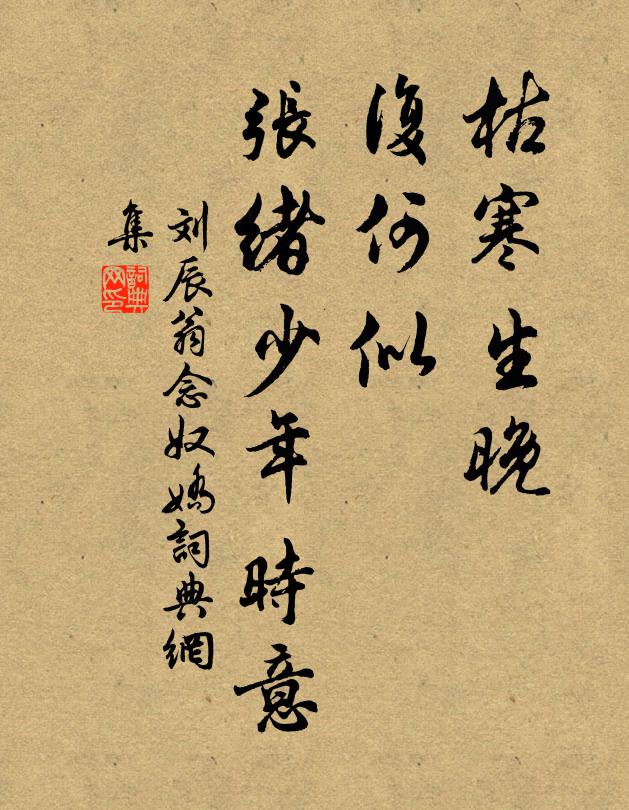 枯寒生晚
復何似
張緒少年時意
刘辰翁念奴嬌詞典網
集
詞典
网印